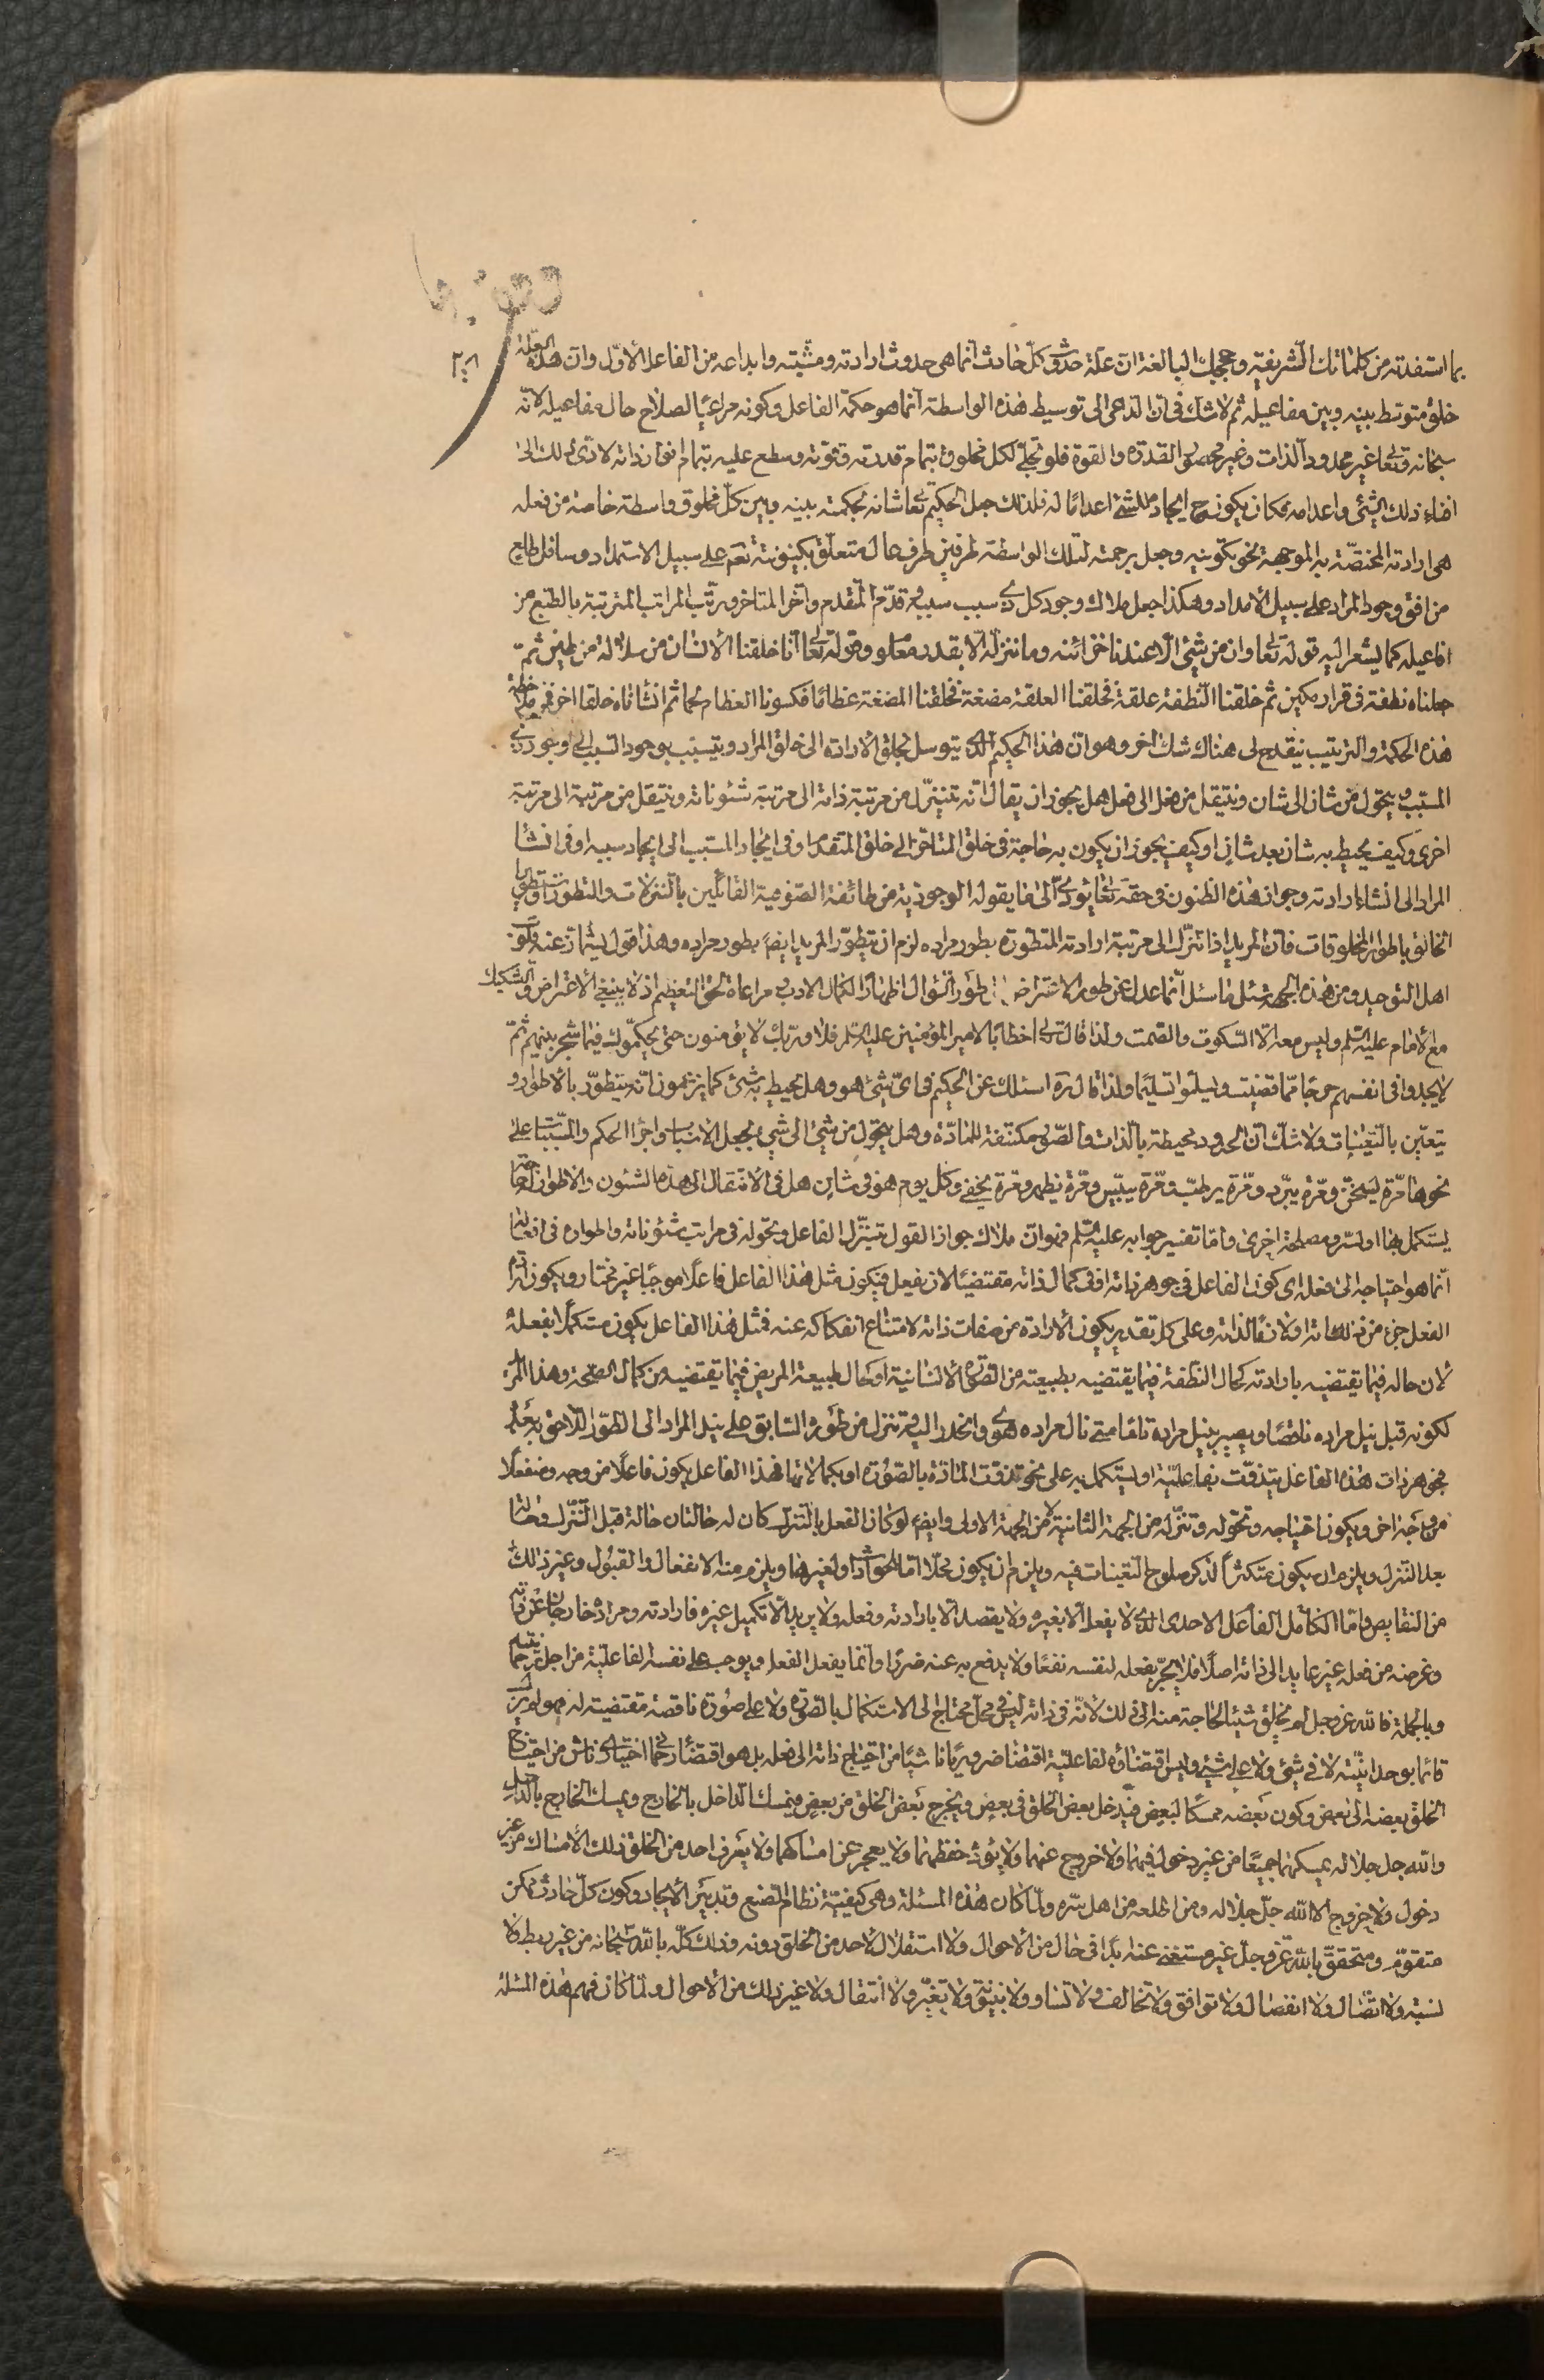 بما استفدته من كلماتك الشريفة وحججك البالغة ان علة حدوث كل حادث انما هى حدوث ارادته ومشيته وابداعه من الفاعل الاول وان هذه العلة
خلق متوسط بينه وبين مفاعيله ثم لا شك فى ان الداعى الى توسيط هذه الواسطة انما هو حكمة الفاعل وكونه مراعيا لصلاح حال مفاعيله لانه
سبحانه وتعالى غير محدود الذات وغير محصور القدرة والقوة فلو تجلى لكل مخلوق بتمام قدرته وقوته وسطع عليه بتمام انوار ذاته لادى ذلك الى
افناء ذلك الشئ واعدامه فكان يكون ح ايجاده للشئ اعداما له فلذلك جعل الحكيم تعالى شانه بحكمته بينه وبين كل مخلوق واسطة خاصة من فعله
هى ارادته المختصة به الموجهة نحو تكوينه وجعل برحمته لتلك الواسطة طرفين طرف عال متعلق بكينونته تعم على سبيل الاستمداد وسافل طالع
من افق وجود المراد على سبيل الامداد وهكذا جعل ملاك وجود كل ذى سبب سببه وقدم المتقدم واخر المتاخر ورتب المراتب المترتبة بالطبع من
افاعيله كما يشعر اليه قوله تعالى وان من شئ الا عندنا خزائنه وما ننزله الا بقدر معلوم وقوله تعالى انا خلقنا الانسان من سلالة من طين ثم
جعلناه نطفة فى قرار مكين ثم خلقنا النطفة علقة فخلقنا العلقة مضغة فخلقنا المضغة عظاما فكسونا العظام لحما ثم انشاناه خلقا اخر فمن ملاحظة
هذه الحكمة والترتيب ينقدح لى هناك شك اخر وهو ان هذا الحكيم الذى يتوسل بخلق الارادة الى خلق المراد ويتسبب بوجود السبب الى وجود ذى
المسبب ويتحول من شان الى شان وينتقل من فعل الى فعل هل يجوز ان يقال انه تنزل من مرتبة ذاته الى مرتبة شئوناته وينتقل من مرتبة الى مرتبة
اخرى وكيف يحيط به شان بعد شان او كيف يجوز ان يكون به حاجة فى خلق المتاخر الى خلق المتقدم او فى ايجاد المسبب الى ايجاد سببه او فى انشا
المراد الى انشاء ارادته وجواز هذه الظنون فى حقه تعالى يؤدى الى ما يقوله الوجودية من طائفة الصوفية القائلين بالتنزلات والتطورات وتطور
الخالق باطوار المخلوقات فان المريد اذا تنزل الى مرتبة ارادته المتطورة بطور مراده لزم ان يتطور المريد ايضا بطور مراده وهذا قول يشماز عنه قلوب
اهل التوحيد ومن هذه الجهة سئل ما سئل انما عدل عن طور الاعتراض الى طور السؤال اظهارا لكمال الادب ومراعاة لحق التعظيم اذ لا ينبغى الاعتراض والتشكيك
مع الامام عليه السلم وليس معه الا السكوت والصمت ولذا قال تعالى خطابا لامير المؤمنين عليه السلم فلا وربك لا يؤمنون حتى يحكموك فيما شجر بينهم ثم
لا يجدوا فى انفسهم حرجا مما قضيت ويسلموا تسليما ولذا قال ره اسئلك عن الحكيم فى اى شئ هو وهل يحيط به شئ كما يزعمون انه يتطور بالاطوار و
يتعين بالتعينات ولا شك ان الحدود محيطة بالذات والصور مكتنفة للمادة وهل يتحول من شئ الى شئ بجعل الاسباب واجرا الحكم والمسببات على
نحوها مرة يسخن ومرة يبرد ومرة يرطب ومرة ييبس ومرة يظهر ومرة يخفى وكل يوم هو فى شان هل فى الانتقال الى هذه الشئون والاطوار لحاجة
يستكمل بها او لسر ومصلحة اخرى واما تفسير جوابه عليه السلم فهو ان ملاك جواز القول بتنزل الفاعل وتحوله فى مراتب شئوناته واطواره فى افعاله
انما هو احتياجه الى فعله اى كون الفاعل فى جوهر ذاته او فى كمال ذاته مقتضيا لان يفعل فيكون مثل هذا الفاعل فاعلا موجبا غير مختار ويكون له
الفعل جزء من ذاته او لازما لذاته وعلى كل تقدير يكون الارادة من صفات ذاته لامتناع انفكاكه عنه فمثل هذا الفاعل يكون مستكملا بفعله
لان حاله فيما يقتضيه بارادته كحال النطفة فيما يقتضيه بطبيعته من الصورة الانسانية او كحال طبيعة المريض فيما يقتضيه من كمال الصحة وهذا المريد
لكونه قبل نيل مراده ناقصا ويصير بنيل مراده تاما متى نال مراده هوى وانحدر اليه وتنزل من طوره السابق على نيل المراد الى الطور اللاحق به بعد
فجوهر ذات هذه الفاعل يتذوت بفاعليته او يستكمل به على نحو تذوت المادة بالصورة او بكمالاتها فهذا الفاعل يكون فاعلا من وجه ومنفعلا
من وجه اخر ويكون احتياجه وتحوله وتنزله من الجهة الثانية لا من الجهة الاولى وايضا لو كان الفعل بالتنزل كان له حالتان حالة قبل التنزل وحالة
بعد التنزل ويلزم ان يكون متكثرا لذكر صلوح التعينات فيه ويلزم ان يكون محلا اما للحوادث او لغيرها ويلزم منه الانفعال والقبول وغير ذلك
من النقايص واما الكامل الفاعل الاحدى الذى لا يفعل الا بغيره ولا يقصد الا بارادته وفعله ولا يريد الا تكميل غيره فارادته ومراده خارجان عن ذاته
وغرضه من فعله غير عايد الى ذاته اصلا فلا يجر بفعله لنفسه نفعا ولا يدفع به عنه ضررا وانما يفعل الفعل ويوجب على نفسه الفاعلية من اجل ترحمه
وبالجملة فالله عز وجل لم يخلق شيئا لحاجة منه الى ذلك لانه فى ذاته ليس فى محل محتاج الى الاستكمال بالصورة ولا على صورة ناقصة مقتضية له فهو لم يزل
قائما بوحدانيته لا فى شئ ولا على شئ وليس اقتضاؤه لفاعليته اقتضا ضروريا ناشيا من احتياج ذاته الى فعله بل هو اقتضاء رحمانى اختيارى ناش من احتياج
الخلق بعضه الى بعض وكون بعضه ممسكا لبعض فيدخل بعض الخلق فى بعض ويخرج بعض الخلق من بعض فيمسك الداخل بالخارج ويمسك الخارج بالداخل
والله جل جلاله يمسكهما جميعا من غير دخول فيهما ولا خروج عنهما ولا يؤده حفظهما ولا يعجز عن امساكهما ولا يعرف احد من الخلق ذلك الامساك من غير
دخول ولا خروج الا الله جل جلاله ومن اطلعه من اهل سره ولما كان هذه المسئلة وهى كيفية نظام الصنع وتدبير الايجاد وكون كل حادث ممكن
متقوم ومتحقق بالله عز وجل غير مستغنى عنه بدا فى حال من الاحوال ولا استقلال لاحد من الخلق دونه وذلك كله بالله سبحانه من غير ربط ولا
نسبة ولا اتصال ولا انفصال ولا توافق ولا تخالف ولا تساو ولا بينية ولا تغير ولا انتقال ولا غير ذلك من الاحوال ولما كان فهم هذه المسئلة